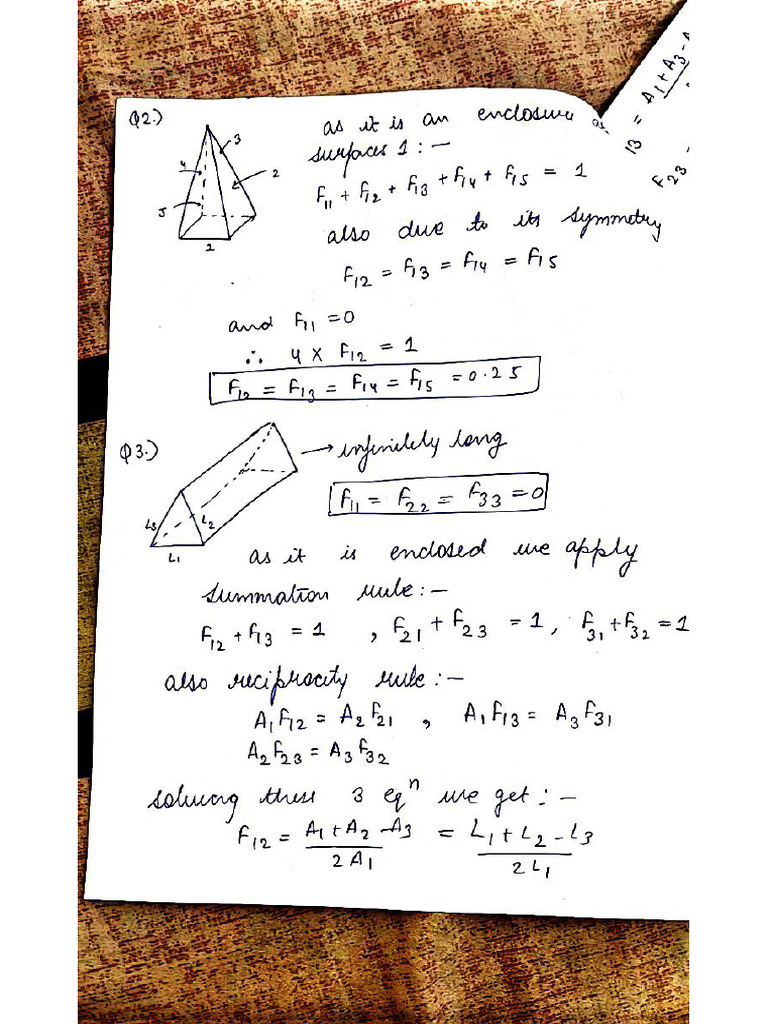 Q2.)
3
4
2
5
1
as it is an enclosure as
surfaces 1 :-
F11 + F12 + F13 + F14 + F15 = 1
also due to its symmetry
F12 = F13 = F14 = F15
and F11 = 0
∴ 4 X F12 = 1
F12 = F13 = F14 = F15 = 0.25
Q3.)
→ infinitely long
L3
L2
L1
F11 = F22 = F33 = 0
as it is enclosed we apply
summation rule :-
F12 + F13 = 1 , F21 + F23 = 1 , F31 + F32 = 1
also reciprocity rule :-
A1F12 = A2F21 , A1F13 = A3F31
A2F23 = A3F32
solving these 3 eqn we get :-
F12 = A1 + A2 - A3 / 2A1 = L1 + L2 - L3 / 2L1
13 = A1 + A3 -
F23